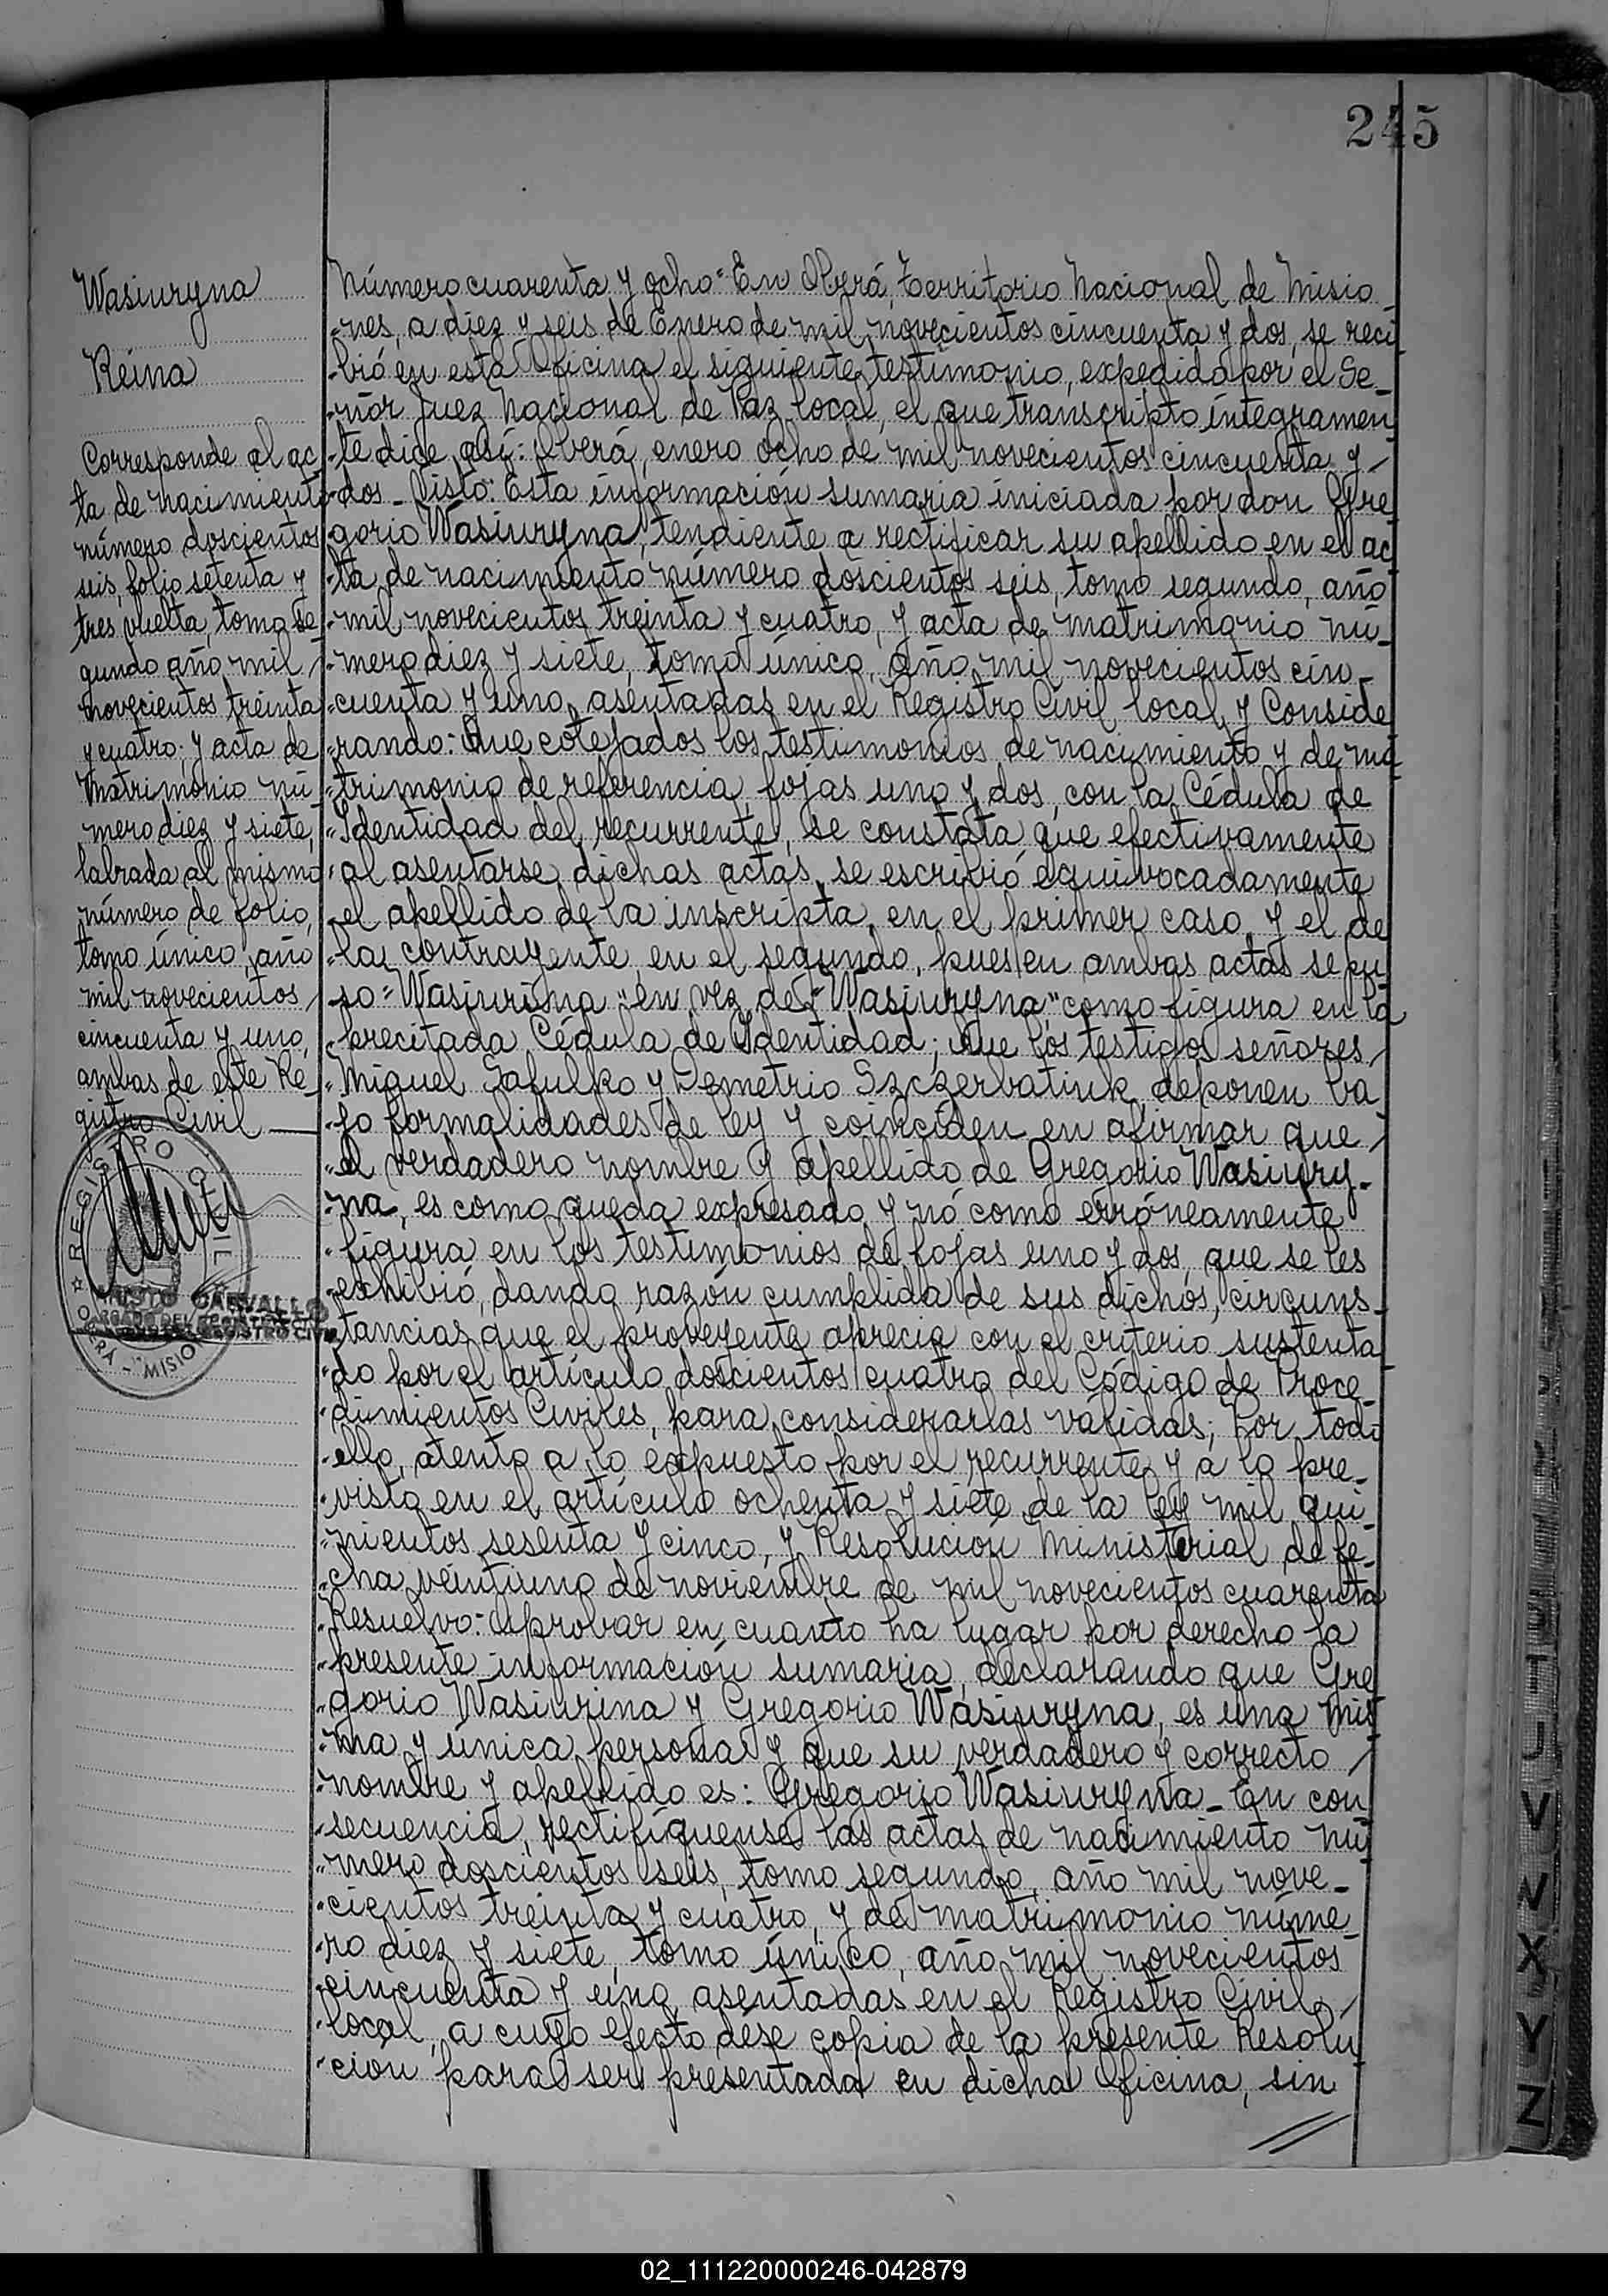 245
Wasiuryna
Reina
Corresponde al ac-
ta de nacimiento
número doscientos
seis, folio setenta y
tres vuelta, tomo se-
gundo año mil
novecientos treinta
y cuatro; y acta de
matrimonio nú-
mero diez y siete,
labrada al mismo
número de folio,
tomo único, año
mil novecientos
cincuenta y uno,
ambas de este Re-
gistro Civil
REGISTRO CIVIL
CARVALLO
OBERÁ - MISIONES
Número cuarenta y ocho = En Oberá, Territorio Nacional de Misio-
nes, a diez y seis de Enero de mil novecientos cincuenta y dos, se reci
bió en esta Oficina el siguiente testimonio, expedido por el Se-
ñor Juez Nacional de Paz local, el que transcripto íntegramen
te dice así: Oberá, enero ocho de mil novecientos cincuenta y
dos - Visto: Esta información sumaria iniciada por don Gre
gorio Wasiuryna, tendiente a rectificar su apellido en el ac
ta de nacimiento número doscientos seis, tomo segundo, año
mil novecientos treinta y cuatro, y acta de matrimonio nú-
mero diez y siete, tomo único, año mil novecientos cin-
cuenta y uno, asentadas en el Registro Civil local, y Conside
rando: Que cotejados los testimonios de nacimiento y de ma
trimonio de referencia, fojas uno y dos, con la Cédula de
Identidad del recurrente, se constata que efectivamente
al asentarse dichas actas, se escribió equivocadamente
el apellido de la inscripta, en el primer caso, y el de
la contrayente, en el segundo, pues en ambas actas se pu
so "Wasiurina" en vez de "Wasiuryna" como figura en la
precitada Cédula de Identidad; que los testigos señores
Miguel y Demetrio Szczerbatiuk, deponen ba
jo formalidades de ley y coinciden en afirmar que
el verdadero nombre y apellido de Gregorio Wasiury-
na, es como queda expresado y nó como erróneamente
figura en los testimonios de fojas uno y dos, que se les
exhibió, dando razón cumplida de sus dichos, circuns-
tancias que el proveyente aprecia con el criterio sustenta
do por el artículo doscientos cuatro del Código de Proce-
dimientos Civiles, para considerarlas válidas; Por todo
ello, atento a lo expuesto por el recurrente y a lo pre-
visto en el artículo ochenta y siete de la ley mil qui-
nientos sesenta y cinco, y Resolución Ministerial de fe-
cha veintiuno de noviembre de mil novecientos cuarenta
Resuelvo: Aprobar en cuanto ha lugar por derecho la
presente información sumaria, declarando que Gre
gorio Wasiurina y Gregorio Wasiuryna, es una mis
ma y única persona y que su verdadero y correcto
nombre y apellido es: Gregorio Wasiuryna - En con
secuencia, rectifíquense las actas de nacimiento nú
mero doscientos seis, tomo segundo, año mil nove-
cientos treinta y cuatro, y de matrimonio núme-
ro diez y siete, tomo único, año mil novecientos
cincuenta y uno, asentadas en el Registro Civil
local, a cuyo efecto dése copia de la presente Resolu
ción para ser presentada en dicha Oficina, sin
V
X
Y
Z
02_111220000246-042879